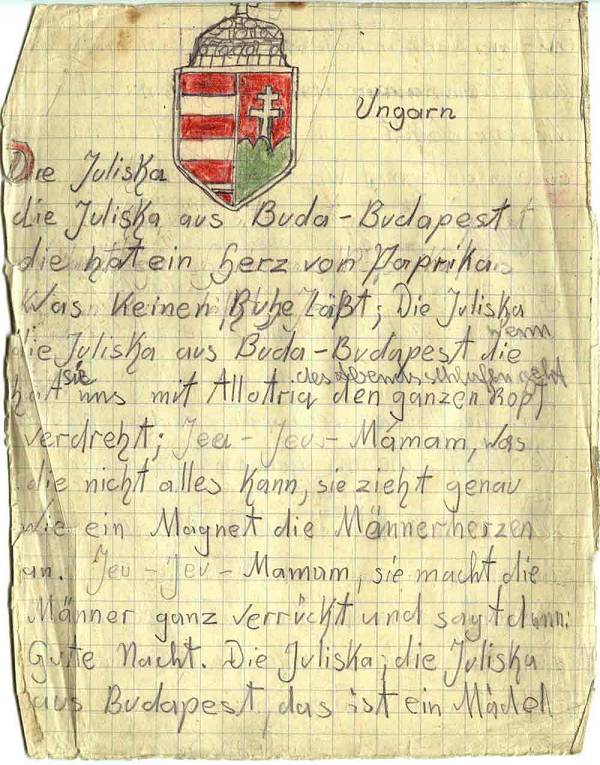 Ungarn
Die Juliska
die Juliska aus Buda-Budapest
die hat ein Herz von Paprika
Was keinen Ruhe Läßt; Die Juliska
wenn
die Juliska aus Buda-Budapest die
sie des Abends schlafen geht
hat uns mit Allotria den ganzen Kopf
verdreht; Jeu - Jeu - Mámam, was
die nicht alles kann, sie zieht genau
wie ein Magnet die Männerherzen
an. Jeu - Jeu - Mamam, sie macht die
Männer ganz verrückt und sagt dann:
Gute Nacht. Die Juliska, die Juliska
aus Budapest, das ist ein Mädel